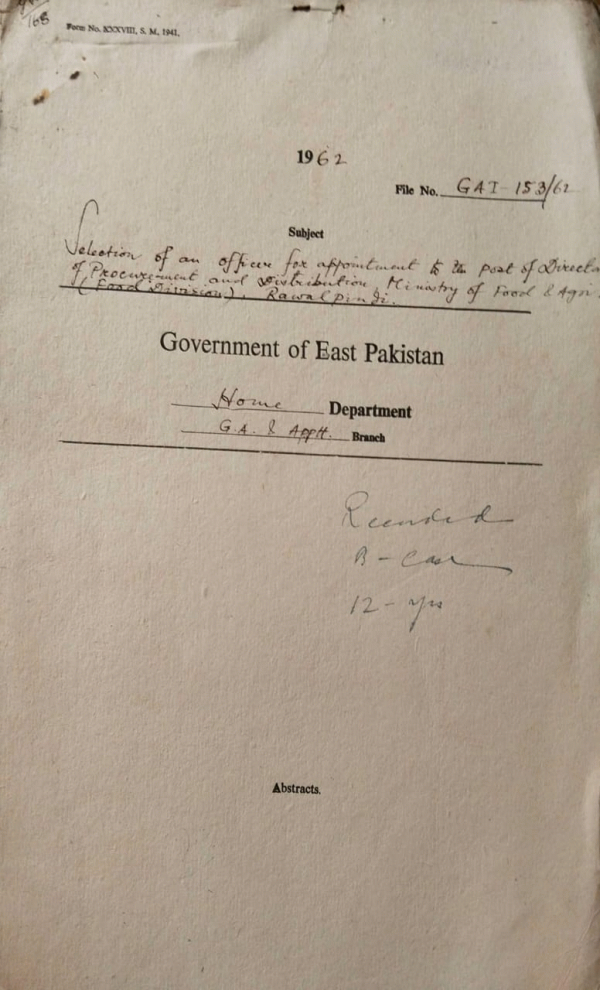 168
Form No. XXXVIII, S. M, 1941.
1962
File No. GAI-153/62
Subject
Selection of an officer for appointment to the post of Directo
of Procurement and Distribution, Ministry of Food & Agri.
(Food Division), Rawalpindi.
Government of East Pakistan
Home Department
G.A. & Apptt. Branch
Recorded
B-Case
12-yrs
Abstracts.